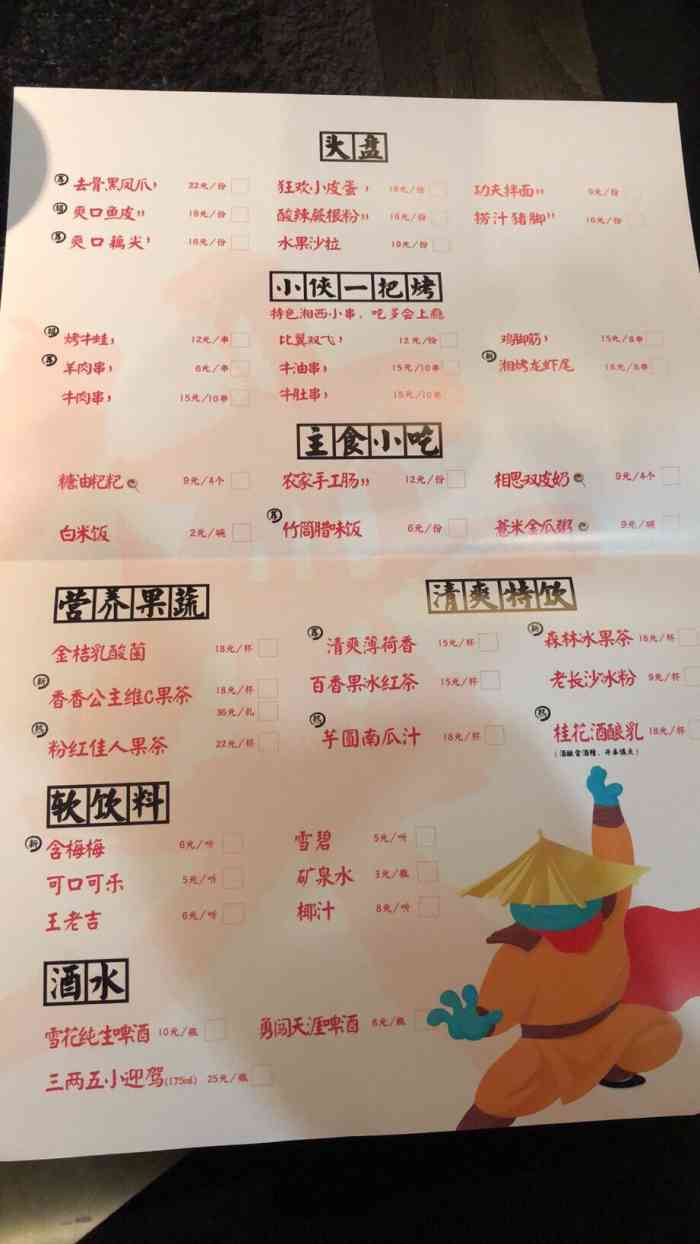 头盘
去骨黑凤爪 22元/份 狂欢小皮蛋 18元/份 功夫拌面 9元/份
爽口鱼皮 18元/份 酸辣蕨根粉 16元/份 捞汁猪脚 16元/份
荐 爽口藕尖 16元/份 水果沙拉 19元/份
小侠一把烤
特色湘西小串，吃多会上瘾
烤牛蛙 12元/串 比翼双飞 12元/份 鸡脚筋 15元/8串
羊肉串 6元/串 牛油串 15元/10串 新 湘烤龙虾尾
牛肉串 15元/10串 牛肚串 15元/10串
主食小吃
糖油粑粑 9元/4个 农家手工肠 12元/份 相思双皮奶 9元/个
白米饭 2元/碗 荐 竹筒腊味饭 6元/份 薏米金瓜粥 9元/碗
营养果蔬 清爽特饮
金桔乳酸菌 18元/杯 荐 清爽薄荷香 15元/杯 新 森林水果茶 16元/杯
新 香香公主维C果茶 18元/杯 百香果冰红茶 15元/杯 老长沙冰粉 9元/杯
36元/扎
热 粉红佳人果茶 22元/杯 热 芋圆南瓜汁 18元/杯 热 桂花酒酿乳 18元/杯
软饮料
新 含梅梅 6元/听 雪碧 5元/听
可口可乐 5元/听 矿泉水 3元/瓶
王老吉 6元/听 椰汁 8元/听
酒水
雪花纯生啤酒 10元/瓶 勇闯天涯啤酒 6元/瓶
三两五小迎驾(175ml) 25元/瓶